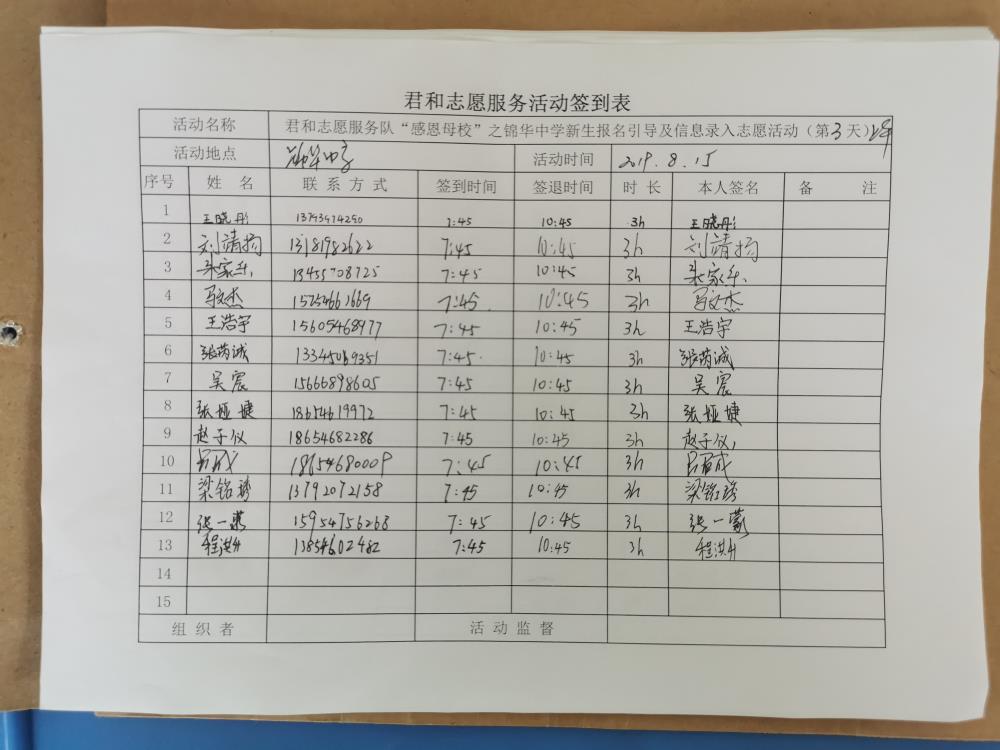 君和志愿服务活动签到表
活动名称 君和志愿服务队“感恩母校”之锦华中学新生报名引导及信息录入志愿活动（第3天）上午
活动地点 锦华中学 活动时间 2019.8.15
序号 姓名 联系方式 签到时间 签退时间 时长 本人签名 备注
1 王晓彤 7:45 10:45 3h 王晓彤
2 刘靖扬 13181982622 7:45 10:45 3h 刘靖扬
3 朱家乐 13455708725 7:45 10:45 3h 朱家乐
4 文杰 15254661669 7:45 10:45 3h 文杰
5 王浩宇 15605468977 7:45 10:45 3h 王浩宇
6 张芮诚 13345069351 7:45 10:45 3h 张芮诚
7 吴宸 15666898605 7:45 10:45 3h 吴宸
8 张娅婕 18654619972 7:45 10:45 3h 张娅婕
9 赵子仪 18654682286 7:45 10:45 3h 赵子仪
10 18654680009 7:45 10:45 3h
11 梁铭琇 13792072158 7:45 10:45 3h 梁铭琇
12 张一蒙 15954756268 7:45 10:45 3h 张一蒙
13 程洪升 13854602482 7:45 10:45 3h 程洪升
14
15
组织者 活动监督